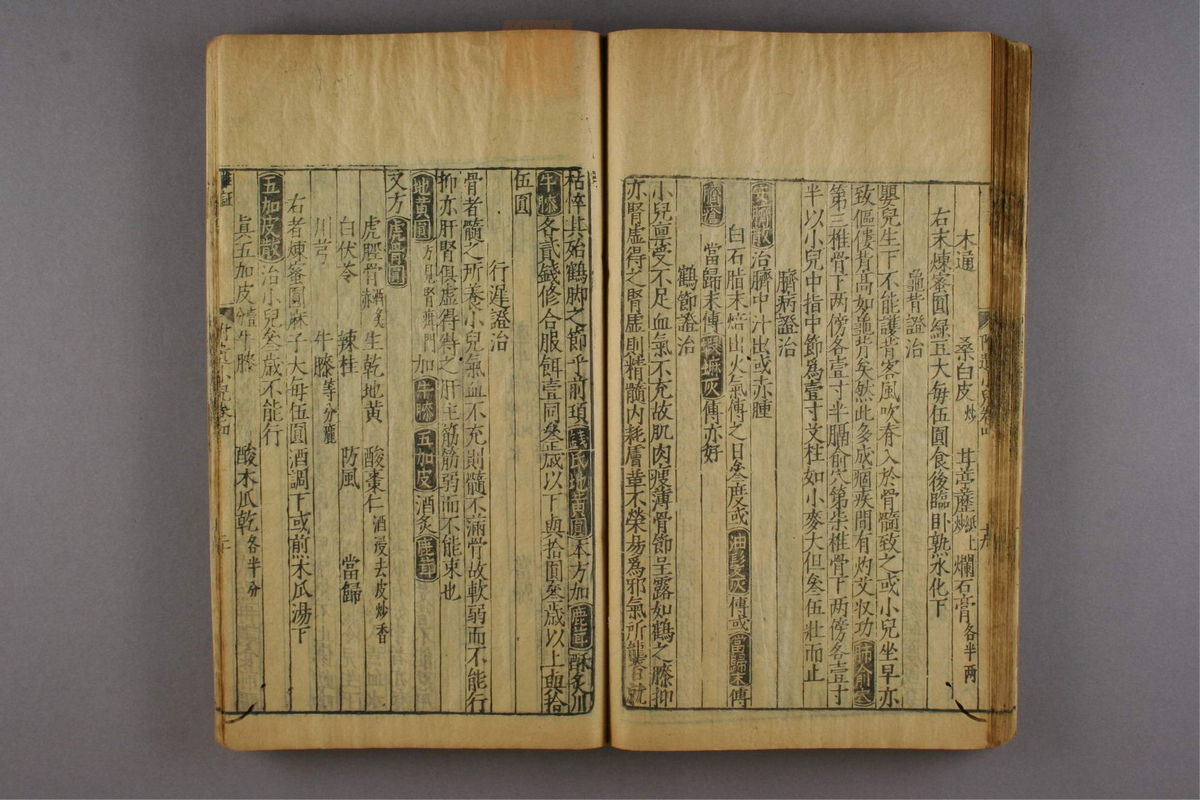 木通 桑白皮炒 甘葶藶紙上炒 爛石膏各半兩
右末煉蜜圓綠豆大每伍圓食後臨臥熟水化下
龜背證治
嬰兒生下不能護背客風吹脊入於骨髓致之或小兒坐早亦
致傴僂背高如龜背矣然此多成痼疾間有灼艾收功肺俞穴
第三椎骨下兩傍各壹寸半膈俞穴第柒椎骨下兩傍各壹寸
半以小兒中指中節為壹寸艾柱如小麥大但叁伍壯而止
臍病證治
安臍散治臍中汁出或赤腫
白石脂末焙出火氣傅之日叁度或油髮灰傅或當歸末傅
臍瘡 當歸末傅 灰傅亦好
鶴節證治
小兒稟受不足血氣不充故肌肉瘦薄骨節呈露如鶴之膝抑
亦腎虛得之腎虛則精髓內耗膚革不榮易為邪氣所襲日就
枯悴其殆鶴脚之節乎前項錢氏地黃圓本方加鹿茸酥炙川
牛膝各貳錢修合服餌壹同叁歲以下與拾圓叁歲以上與拾
伍圓
行遲證治
骨者髓之所養小兒氣血不充則髓不滿骨故軟弱而不能行
抑亦肝腎俱虛得得之肝主筋筋弱而不能束也
地黃圓方見腎疳門加牛膝五加皮酒炙鹿茸
又方虎骨圓
虎脛骨酒炙赤 生乾地黃 酸棗仁酒浸去皮炒香
白伏苓 辣桂 防風 當歸
川芎 牛膝等分
右者煉蜜圓麻子大每伍圓酒調下或煎木瓜湯下
五加皮散治小兒叁歲不能行
真五加皮 牛膝 酸木瓜乾各半分